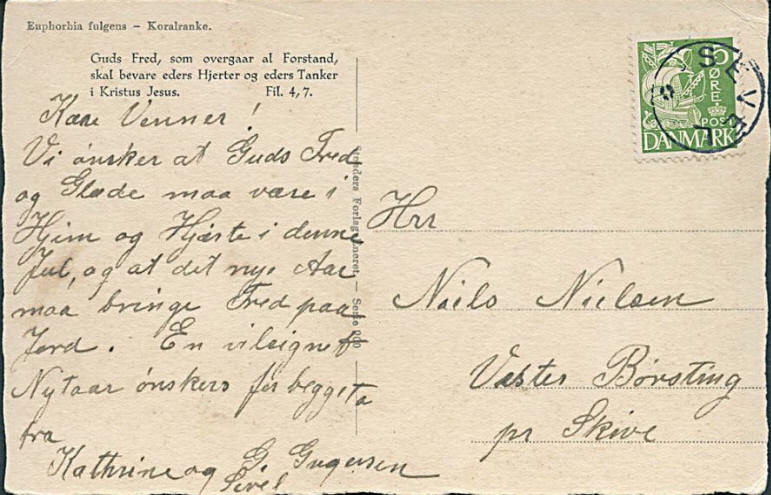 Euphorbia fulgens – Koralranke.
Guds Fred, som overgaar al Forstand,
skal bevare eders Hjerter og eders Tanker
i Kristus Jesus. Fil. 4, 7.
Kære Venner!
Vi ønsker at Guds Fred
og Glæde maa være i
Hjem og Hjærte i denne
Jul, og at det nye Aar
maa bringe Fred paa
Jord. En vilsignet
Nytaar ønskers fer begge to
fra
Kathrine og G.
Sevel
5
ØRE
POST
DANMARK
SEVEL
Hrr
Niels Nielsen
Vester Børsting
pr Skive
Forlag Eneret. — Serie